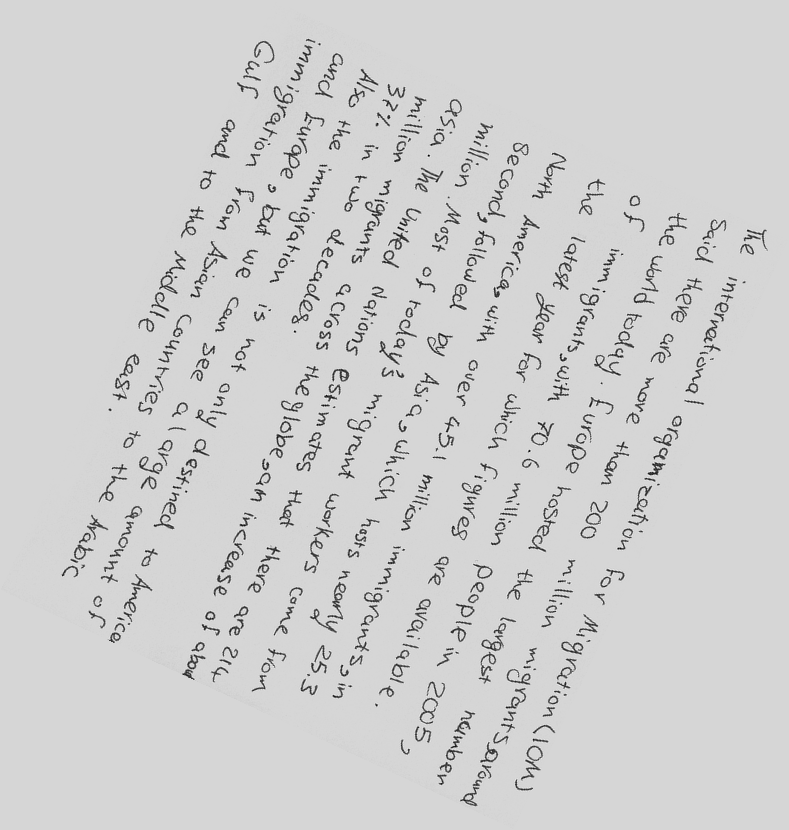 The international organization for Migration (IOM)
Said there are more than 200 million migrants around
the world today. Europe hosted the largest number
of immigrants, with 70.6 million people in 2005,
the latest year for which figures are available.
North America, with over 45.1 million immigrants, in
Second, followed by Asia, which hosts nearly 25.3
million. Most of today's migrant workers come from
asia. The United Nations estimates that there are 214
million migrants across the globe, an increase of abou
37% in two decades.
Also the immigration is not only destined to America
and Europe, but we can see a large amount of
immigration from Asian countries to the Arabic
Gulf and to the Middle east.